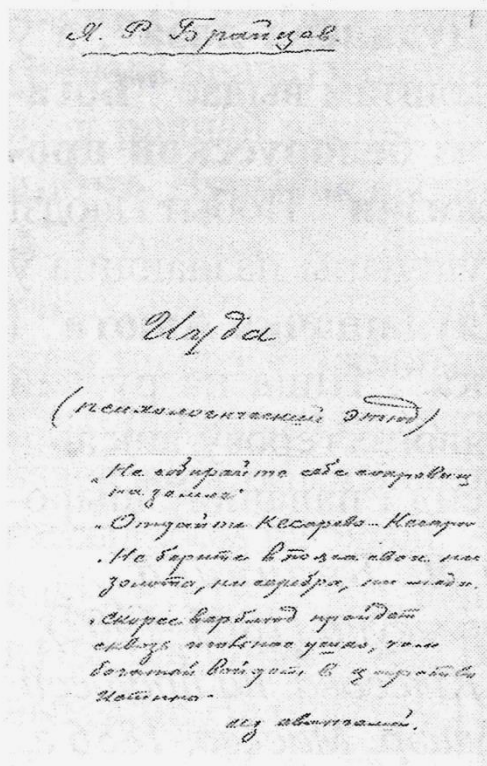 Я. Р. Брайцов.
Иуда
(психологический этюд)
„Не собирайте себе сокровищ
на земле"
„Отдайте Кесарево... Кесарю
„Не берите в пояса свои ни
золота, ни серебра, ни меди.
„Скорее верблюд пройдет
сквозь игольное ушко, чем
богатый войдет в царство
истины.
из евангелий.